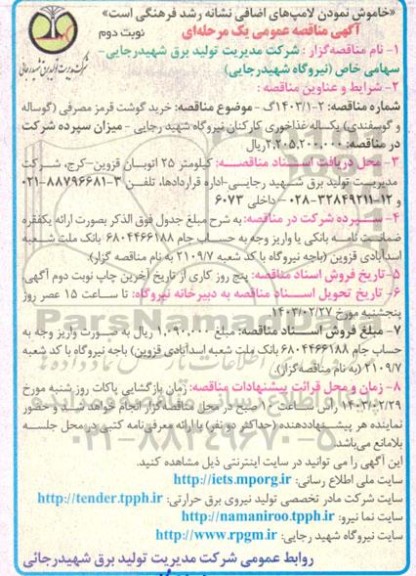 «خاموش نمودن لامپ‌های اضافی نشانه رشد فرهنگی است»
آگهی مناقصه عمومی یک مرحله‌ای
نوبت دوم
شرکت مدیریت تولید برق شهید رجائی
۱- نام مناقصه‌گزار: شرکت مدیریت تولید برق شهیدرجایی-
سهامی خاص (نیروگاه شهیدرجایی)
۲- شرایط و عناوین مناقصه:
شماره مناقصه: ۲-۱۴۰۳/۱گ - موضوع مناقصه: خرید گوشت قرمز مصرفی (گوساله
و گوسفندی) یکساله غذاخوری کارکنان نیروگاه شهید رجایی - میزان سپرده شرکت
در مناقصه: ۲,۲۰۵,۲۰۰,۰۰۰ریال
۳- محل دریافت اسناد مناقصه: کیلومتر ۲۵ اتوبان قزوین-کرج، شرکت
مدیریت تولید برق شهید رجایی-اداره قراردادها، تلفن ۳-۸۸۷۹۶۶۸۱-۰۲۱
و ۱۲-۳۲۸۴۹۲۱۱-۰۲۸- داخلی ۶۰۷۳
۴- سپرده شرکت در مناقصه: به شرح مبلغ جدول فوق الذکر بصورت ارائه یکفقره
ضمانت نامه بانکی یا واریز وجه به حساب جام ۶۸۰۴۴۶۶۱۸۸ بانک ملت شعبه
اسدآبادی قزوین (باجه نیروگاه با کد شعبه ۲۱۰۹/۷ به نام مناقصه گزار).
۵- تاریخ فروش اسناد مناقصه: پنج روز کاری از تاریخ آخرین چاپ نوبت دوم آگهی
۶- تاریخ تحویل اسناد مناقصه به دبیرخانه نیروگاه: تا ساعت ۱۵ عصر روز
پنجشنبه مورخ ۱۴۰۳/۰۲/۲۷
۷- مبلغ فروش اسناد مناقصه: مبلغ ۱,۰۹۰,۰۰۰ ریال به صورت واریز وجه به
حساب جام ۶۸۰۴۴۶۶۱۸۸ بانک ملت شعبه اسدآبادی قزوین( باجه نیروگاه با کد شعبه
۲۱۰۹/۷ به نام مناقصه‌گزار).
۸- زمان و محل قرائت پیشنهادات مناقصه: زمان بازگشایی پاکات روز شنبه مورخ
۱۴۰۳/۰۲/۲۹ راس ساعت ۱۰ صبح در محل مناقصه‌گزار انجام خواهد شد و حضور
نماینده هر پیشنهاددهنده (حداکثر دو نفر) با ارائه معرفی‌نامه کتبی در محل جلسه
بلامانع می‌باشد.
این آگهی را می توانید در سایت اینترنتی ذیل مشاهده کنید.
سایت ملی اطلاع رسانی: http://iets.mporg.ir
سایت شرکت مادر تخصصی تولید نیروی برق حرارتی: http://tender.tpph.ir
سایت نما نیرو: http://namaniroo.tpph.ir
سایت نیروگاه شهید رجایی: http://www.rpgm.ir
روابط عمومی شرکت مدیریت تولید برق شهیدرجائی
ParsNamadData
۰۲۱-۸۸۳۴۹۶۷۰-۵